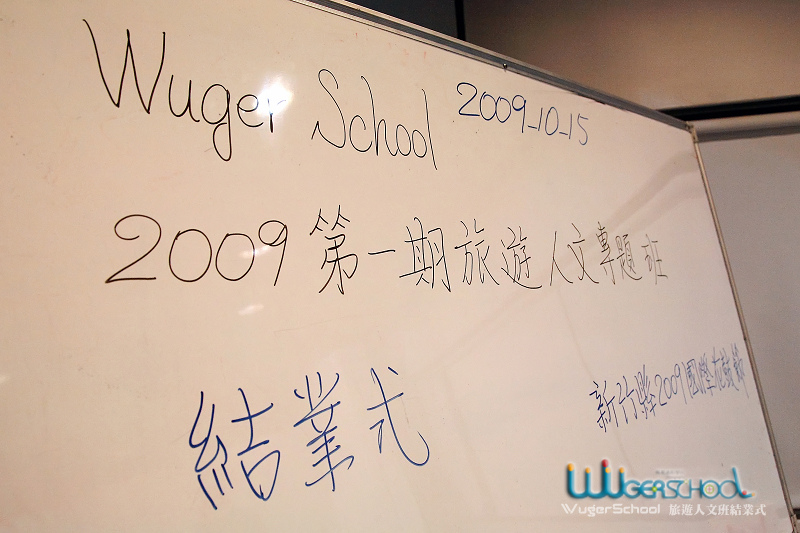 Wuger School
2009_10_15
2009 第一期旅遊人文專題班
結業式
新竹縣2009國際花鼓節
WUGERSCHOOL
WugerSchool 旅遊人文班結業式